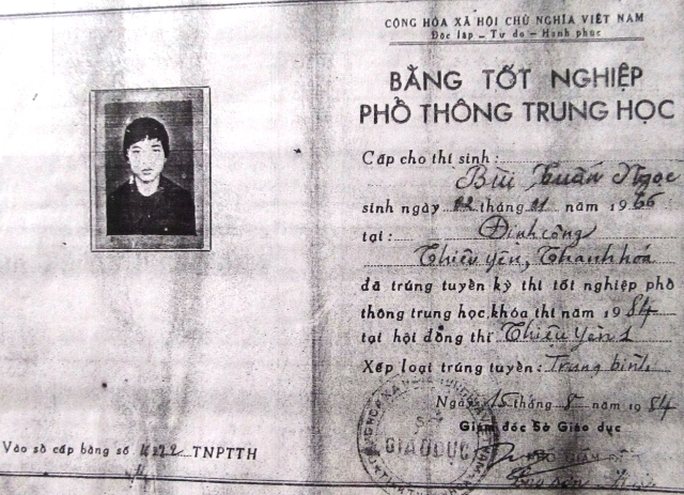 CỘNG HÒA XÃ HỘI CHỦ NGHĨA VIỆT NAM
Độc lập - Tự do - Hạnh phúc
BẰNG TỐT NGHIỆP
PHỔ THÔNG TRUNG HỌC
Cấp cho thí sinh:
Bùi Xuân Ngọc
sinh ngày 02 tháng 01 năm 1966
tại: Định Công
Thiệu Yên, Thanh hóa
đã trúng tuyển kỳ thi tốt nghiệp phổ
thông trung học, khóa thi năm 1984
tại hội đồng thi Thiệu Yên 1
Xếp loại trúng tuyển: Trung bình
Ngày 15 tháng 8 năm 1984
Giám đốc Sở Giáo dục
GIÁO DỤC
PHÓ GIÁM ĐỐC
Vào sổ cấp bằng số TNPTTH